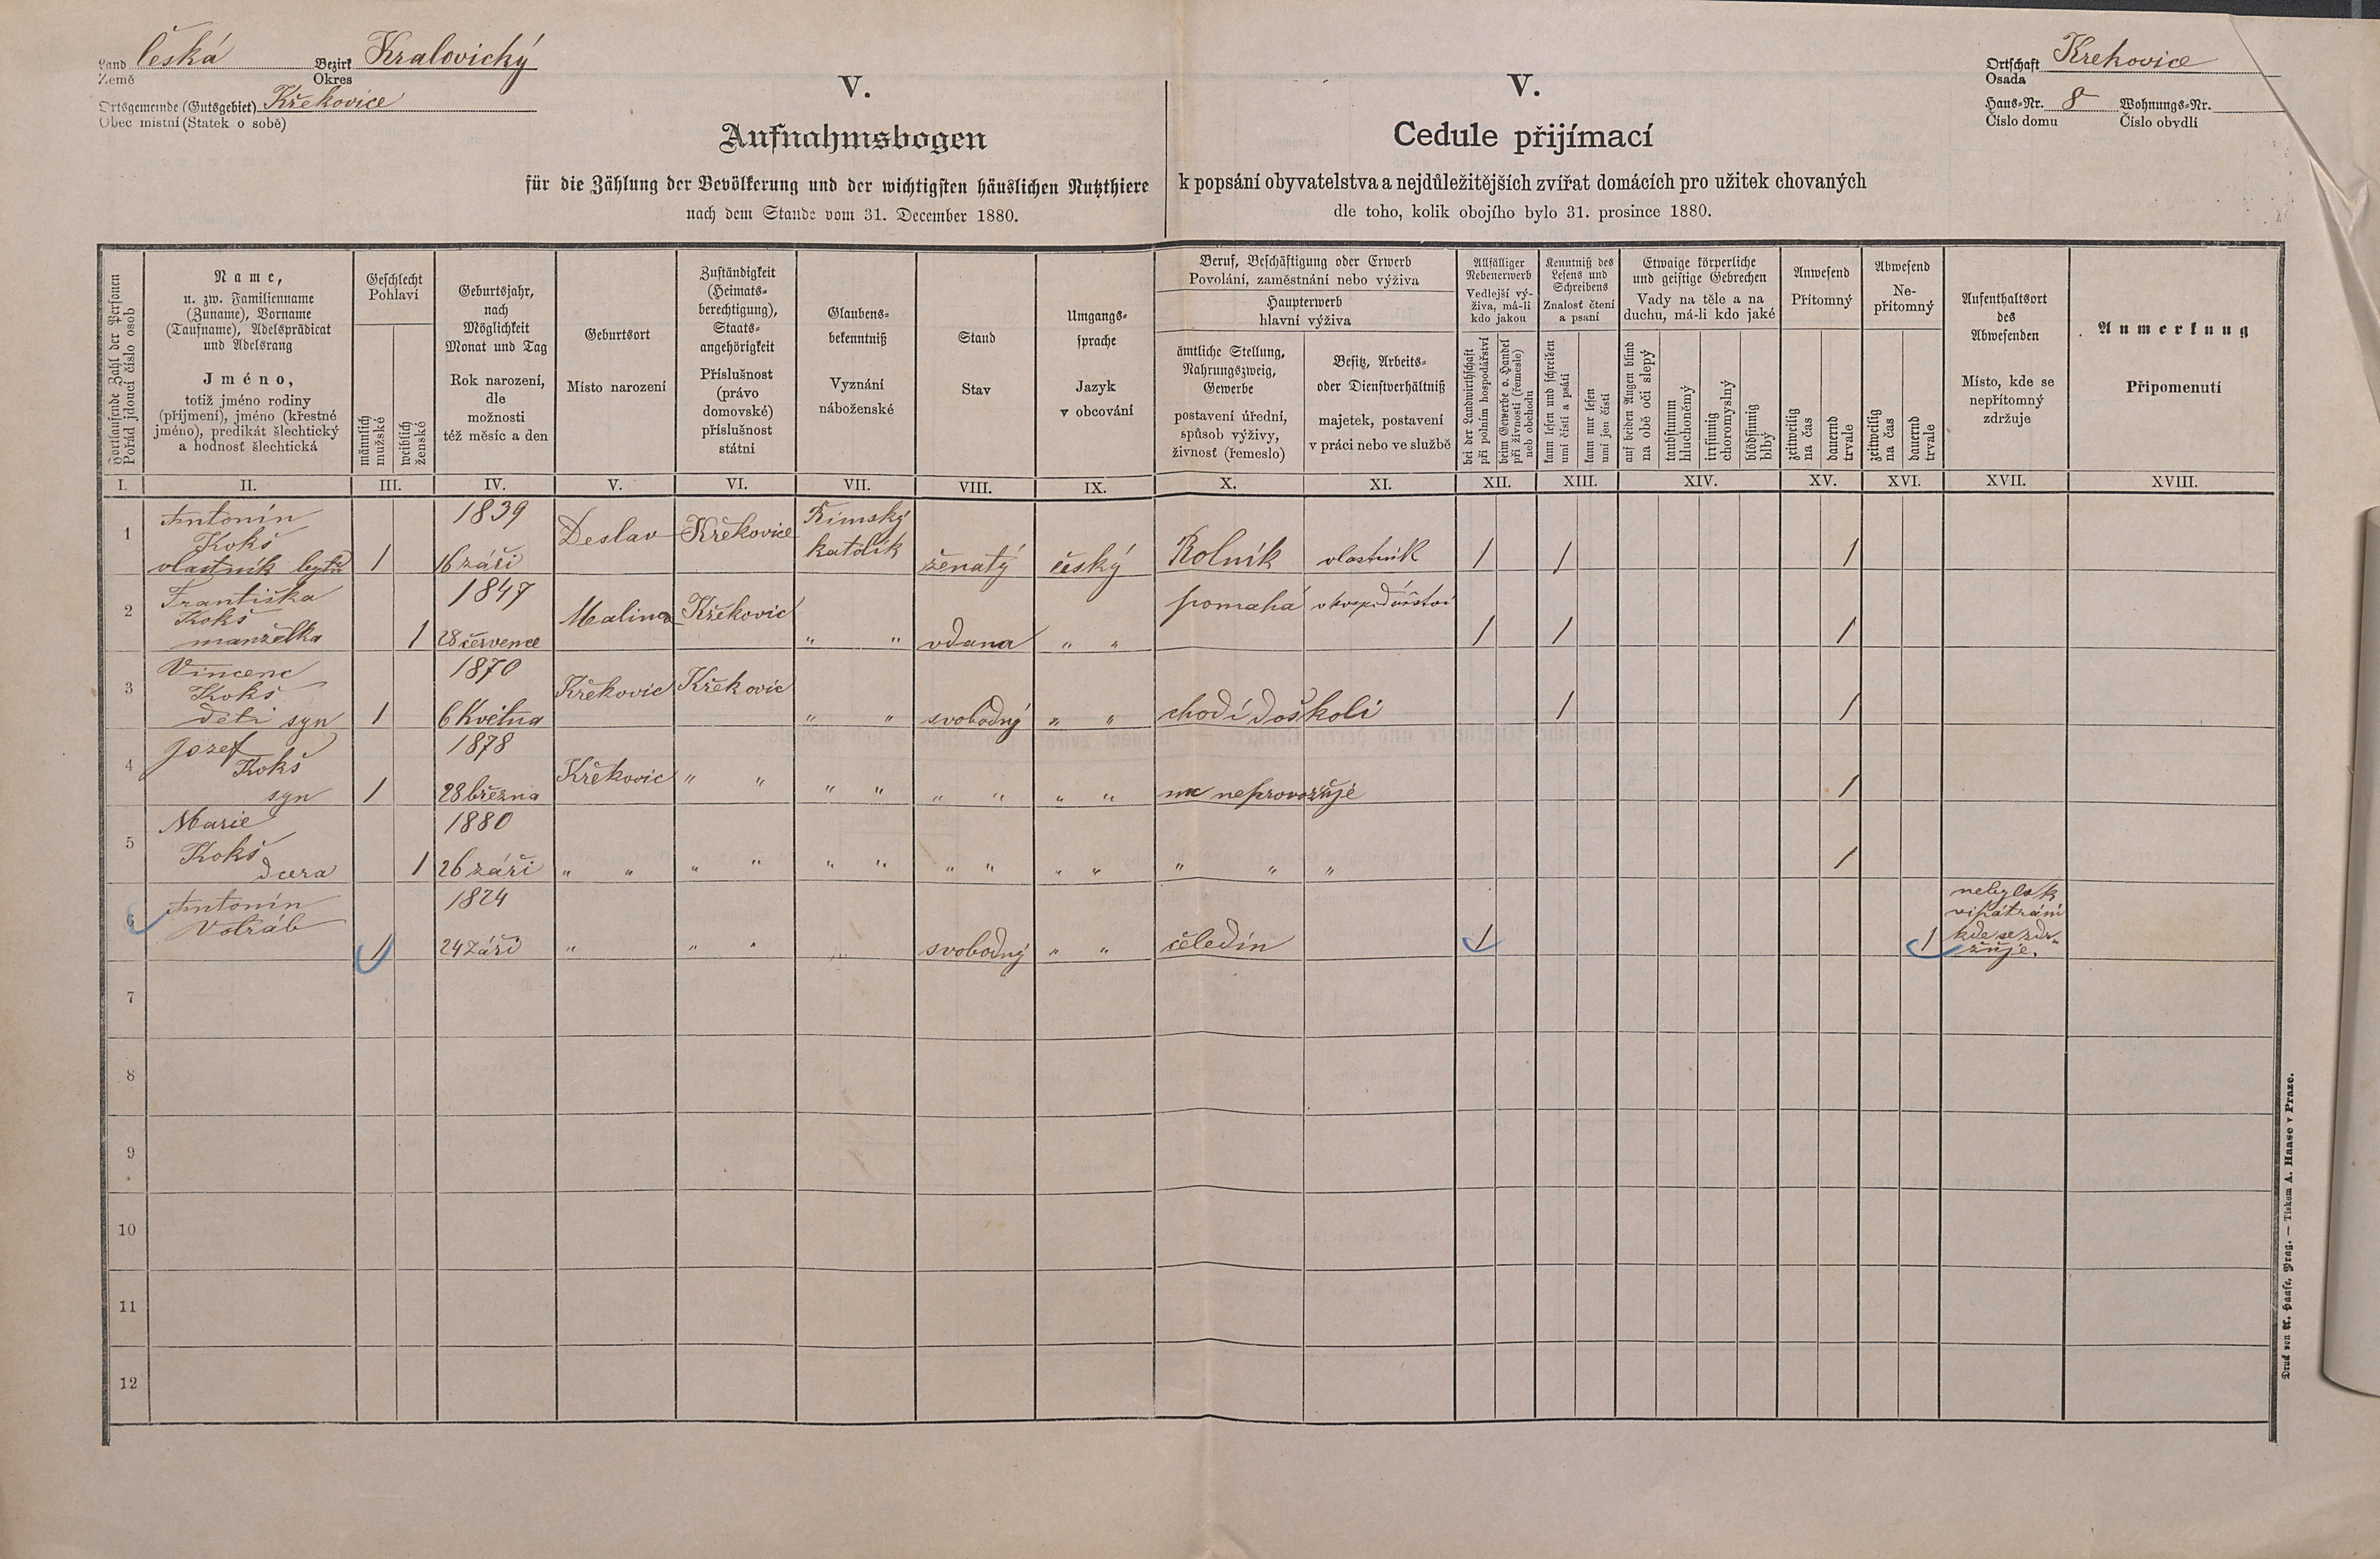 Land česká Bezirk Kralovický
Země Okres
Ortsgemeinde (Gutsgebiet) Křekovice
Obec místní (Statek o sobě)
V.
Aufnahmsbogen
für die Zählung der Bevölkerung und der wichtigsten häuslichen Nutzthiere
nach dem Stande vom 31. December 1880.
V.
Cedule přijímací
k popsání obyvatelstva a nejdůležitějších zvířat domácích pro užitek chovaných
dle toho, kolik obojího bylo 31. prosince 1880.
Ortschaft Krekovice
Osada
Haus-Nr. 8 Wohnungs-Nr.
Číslo domu Číslo obydlí
Fortlaufende Zahl der Personen
Pořád jdoucí číslo osob
Name,
u. zw. Familienname
(Zuname), Vorname
(Taufname), Adelsprädicat
und Adelsrang
Jméno,
totiž jméno rodiny
(příjmení), jméno (křestné
jméno), predikát šlechtický
a hodnosť šlechtická
Geschlecht
Pohlaví
männlich
mužské
weiblich
ženské
Geburtsjahr,
nach
Möglichkeit
Monat und Tag
Rok narození,
dle
možnosti
též měsíc a den
Geburtsort
Místo narození
Zuständigkeit
(Heimats-
berechtigung),
Staats-
angehörigkeit
Příslušnost
(právo
domovské)
příslušnost
státní
Glaubens-
bekenntniß
Vyznání
náboženské
Stand
Stav
Umgangs-
sprache
Jazyk
v obcování
Beruf, Beschäftigung oder Erwerb
Povolání, zaměstnání nebo výživa
Haupterwerb
hlavní výživa
ämtliche Stellung,
Nahrungszweig,
Gewerbe
postavení úřední,
spůsob výživy,
živnosť (řemeslo)
Besitz, Arbeits-
oder Dienstverhältniß
majetek, postavení
v práci nebo ve službě
Allfälliger
Nebenerwerb
Vedlejší vý-
živa, má-li
kdo jakou
bei der Landwirthschaft
při polním hospodářství
beim Gewerbe o. Handel
při živnosti (řemesle)
neb obchodu
Kenntniß des
Lesens und
Schreibens
Znalosť čtení
a psaní
kann lesen und schreiben
umí čísti a psáti
kann nur lesen
umí jen čísti
Etwaige körperliche
und geistige Gebrechen
Vady na těle a na
duchu, má-li kdo jaké
auf beiden Augen blind
na obě oči slepý
taubstumm
hluchoněmý
irrsinnig
choromyslný
blödsinnig
blbý
Anwesend
Přítomný
zeitweilig
na čas
dauernd
trvale
Abwesend
Ne-
přítomný
zeitweilig
na čas
dauernd
trvale
Aufenthaltsort
des
Abwesenden
Místo, kde se
nepřítomný
zdržuje
Anmerkung
Připomenutí
I. II. III. IV. V. VI. VII. VIII. IX. X. XI. XII. XIII. XIV. XV. XVI. XVII. XVIII.
1 Antonín 1839 Římský
Kokš Deslav Křekovice katolík
vlastník bytu 1 16 září ženatý český Rolník vlastník 1 1 1
2 Františka 1847
Kokš Malinec Křekovic pomahá v hospodářství
manželka 1 28 července " " vdana " " 1 1 1
3 Vincenc 1870
Kokš Křekovic Křekovic
děti syn 1 6 Května " " svobodný " " chodí do školi 1 1
4 Jozef 1878
Kokš Křekovic " "
syn 1 28 března " " " " " " nic neprovozuje 1
5 Marie 1880
Kokš
dcera 1 26 září " " " " " " " " " " " " " 1
6 Antonín 1824
Votráb
1 24 Září " " " " " svobodný " " čeledín 1 1
nebylo k
vipátrání
kde se zdr-
žuje.
7
8
9
10
11
12
Druck von A. Haase, Prag. — Tiskem A. Haase v Praze.